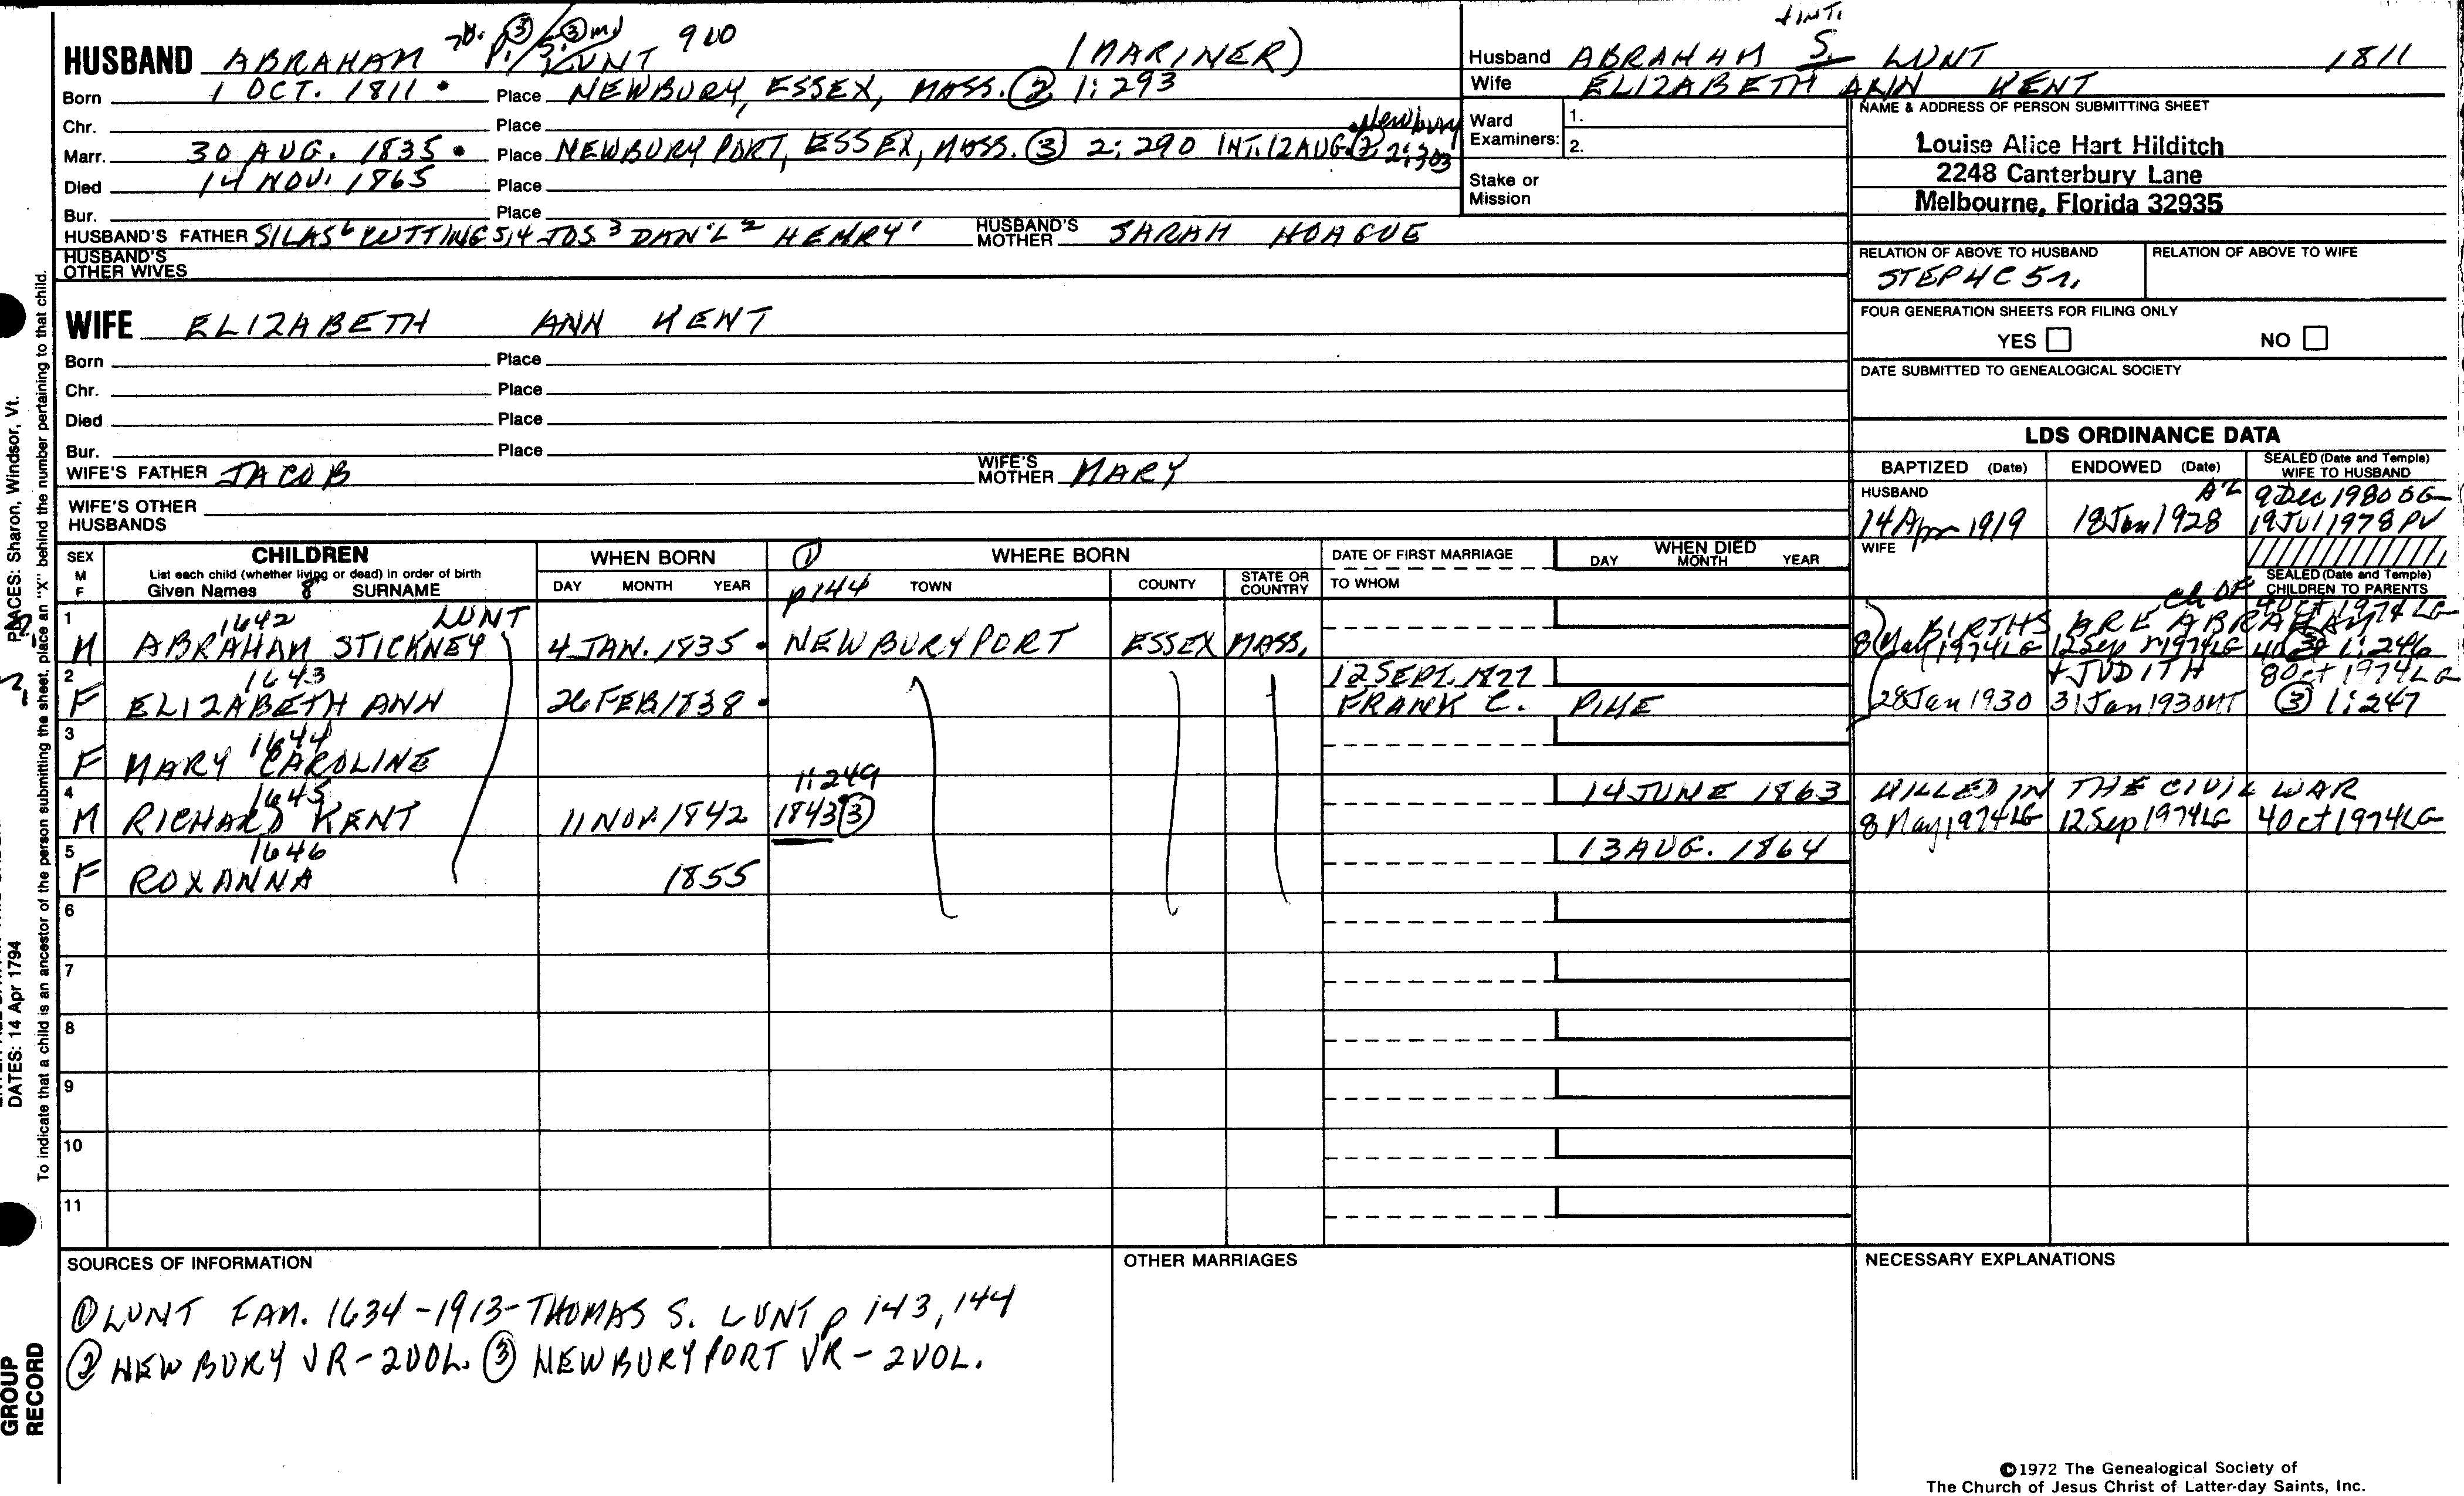 HUSBAND ABRAHAM P./S. LUNT 900 (MARINER)
Born 1 OCT. 1811 • Place NEWBURY, ESSEX, MASS. ② 1:293
Chr. Place
Marr. 30 AUG. 1835 • Place NEWBURYPORT, ESSEX, MASS. ③ 2:290 INT. 12 AUG. ② 2:303 Newbury
Died 14 NOV. 1865 Place
Bur. Place
HUSBAND'S FATHER SILAS⁶ CUTTING 5,4 JOS³ DAN'L² HENRY¹ HUSBAND'S MOTHER SARAH HOAGUE
HUSBAND'S OTHER WIVES
+INT.
Husband ABRAHAM S. LUNT 1811
Wife ELIZABETH ANN KENT
Ward Examiners: 1.
2.
Stake or Mission
NAME & ADDRESS OF PERSON SUBMITTING SHEET
Louise Alice Hart Hilditch
2248 Canterbury Lane
Melbourne, Florida 32935
RELATION OF ABOVE TO HUSBAND RELATION OF ABOVE TO WIFE
STEP4C5r.
FOUR GENERATION SHEETS FOR FILING ONLY
YES NO
DATE SUBMITTED TO GENEALOGICAL SOCIETY
WIFE ELIZABETH ANN KENT
Born Place
Chr. Place
Died Place
Bur. Place
WIFE'S FATHER JACOB WIFE'S MOTHER MARY
WIFE'S OTHER HUSBANDS
LDS ORDINANCE DATA
BAPTIZED (Date) ENDOWED (Date) SEALED (Date and Temple) WIFE TO HUSBAND
HUSBAND AZ 9 Dec 1980 OG
14 Apr 1919 18 Jan 1928 19 Jul 1978 PV
WIFE
SEALED (Date and Temple) CHILDREN TO PARENTS
SEX M F CHILDREN WHEN BORN ① WHERE BORN DATE OF FIRST MARRIAGE WHEN DIED
List each child (whether living or dead) in order of birth
Given Names 8 SURNAME DAY MONTH YEAR p144 TOWN COUNTY STATE OR COUNTRY TO WHOM DAY MONTH YEAR
1 1642 LUNT
M ABRAHAM STICKNEY 4 JAN. 1835 • NEWBURYPORT ESSEX MASS.
BIRTHS ARE ch OF ABRAHAM 4 Oct 1974 LG
8 May 1974 LG 12 Sep 1974 LG ③ 1:246
2 1643 12 SEPT. 1877 + JUDITH 8 Oct 1974 LG
F ELIZABETH ANN 26 FEB 1838 • FRANK C. PIKE 28 Jan 1930 31 Jan 1930 ③ 1:247
3 1644
F MARY CAROLINE
4 1645 1:249 14 JUNE 1863 KILLED IN THE CIVIL WAR
M RICHARD KENT 11 NOV. 1842 1843 ③ 8 May 1974 LG 12 Sep 1974 LG 4 Oct 1974 LG
5 1646 13 AUG. 1864
F ROXANNA 1855
6
7
8
9
10
11
SOURCES OF INFORMATION OTHER MARRIAGES NECESSARY EXPLANATIONS
① LUNT FAM. 1634-1913-THOMAS S. LUNT p 143, 144
② NEWBURY VR-2VOL. ③ NEWBURYPORT VR-2VOL.
©1972 The Genealogical Society of
The Church of Jesus Christ of Latter-day Saints, Inc.
To indicate that a child is an ancestor of the person submitting the sheet, place an "X" behind the number pertaining to that child.
PLACES: Sharon, Windsor, Vt.
DATES: 14 Apr 1794
GROUP
RECORD